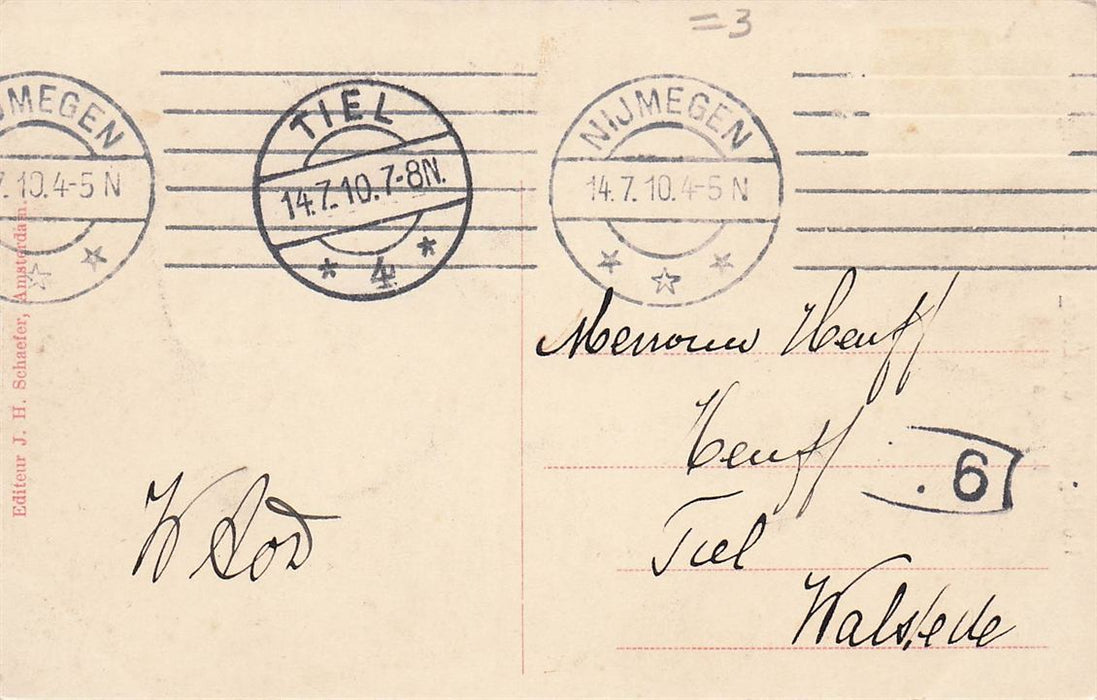 =3
JMEGEN
7.10.4-5 N
TIEL
14.7.10.7-8N.
* 4 *
NIJMEGEN
14.7.10.4-5 N
Editeur J. H. Schaefer, Amsterdam.
Heuff
Heuff
6
Tiel
Walstede
W